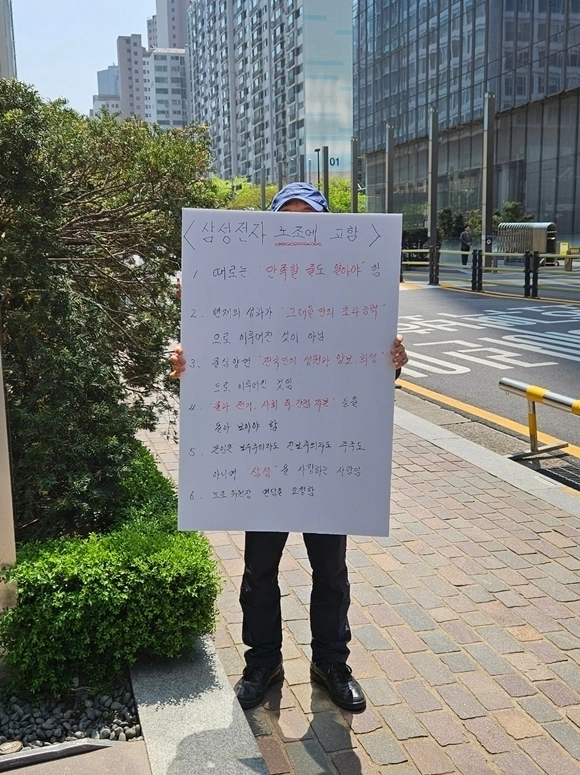 <삼성전자 노조에 고함>
1 때로는 "만족할 줄도 알아야" 함
2. 현재의 성과가 "그대들만의 초과 능력"
으로 이루어진 것이 아님
3. 온국민의 성원과 양보, 희생"
으로 이루어진 것임
4. 사회 적 간접 자본" 등을
돌아 보아야 함
5. 본인은 보수주의자도 진보주의자도 주주도
아니며 "삼성"을 사랑하는 사람임
6. 노조 위원장 면담을 요청함
01